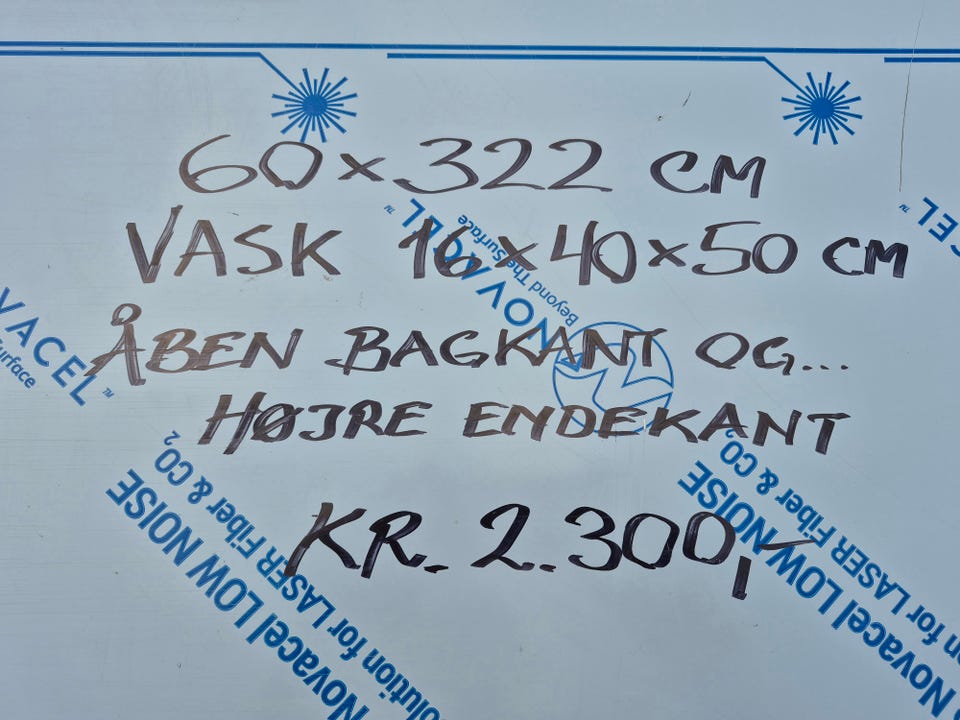 60x322 CM
VASK 16x40x50 CM
ÅBEN BAGKANT OG...
HØJRE ENDEKANT
KR. 2.300,-
NOVACEL™
Beyond The Surface
VACEL™
Surface
CEL
™
Novacel LOW NOISE
Solution for LASER Fiber & CO2
Novacel LOW NOISE
on for LASER Fiber & CO2